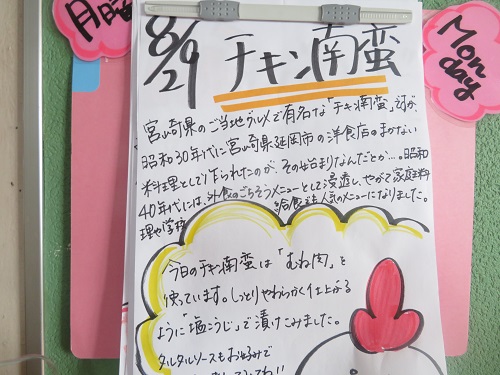 月曜
8/29
チキン南蛮
Monday
宮崎県のご当地グルメで有名な「チキン南蛮」ですが、
昭和30年代に宮崎県延岡市の洋食店のまかない
料理として作られたのが、その始まりなんだとか…。昭和
40年代には、外食のごちそうメニューとして浸透し、やがて家庭料
理や学校給食でも人気のメニューになりました。
今日のチキン南蛮は「むね肉」を
使っています。しっとりやわらかく仕上がる
ように「塩こうじ」で漬けこみました。
タルタルソースもお好みで